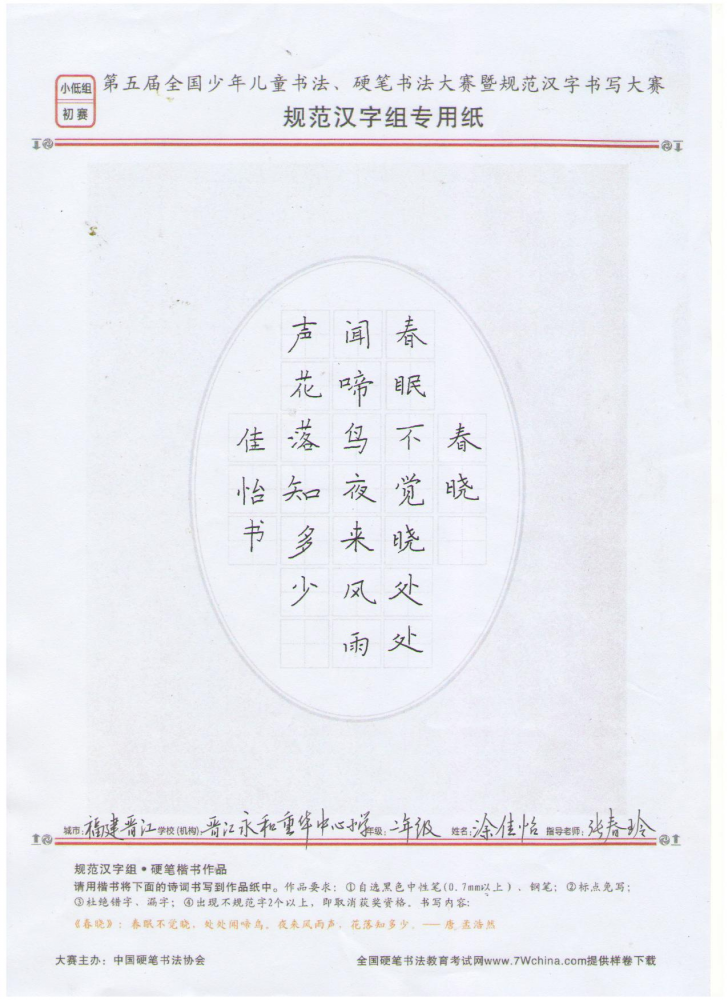 小低组
初赛
第五届全国少年儿童书法、硬笔书法大赛暨规范汉字书写大赛
规范汉字组专用纸
春晓
春眠不觉晓处处
闻啼鸟夜来风雨
声花落知多少
佳怡书
城市:福建晋江 学校(机构):晋江永和重华中心小学 年级:二年级 姓名:涂佳怡 指导老师:张春玲
规范汉字组•硬笔楷书作品
请用楷书将下面的诗词书写到作品纸中。作品要求:①自选黑色中性笔(0.7mm以上)、钢笔;②标点免写;
③杜绝错字、漏字;④出现不规范字2个以上,即取消获奖资格。书写内容:
《春晓》:春眠不觉晓,处处闻啼鸟。夜来风雨声,花落知多少。——唐 孟浩然
大赛主办:中国硬笔书法协会
全国硬笔书法教育考试网www.7Wchina.com提供样卷下载